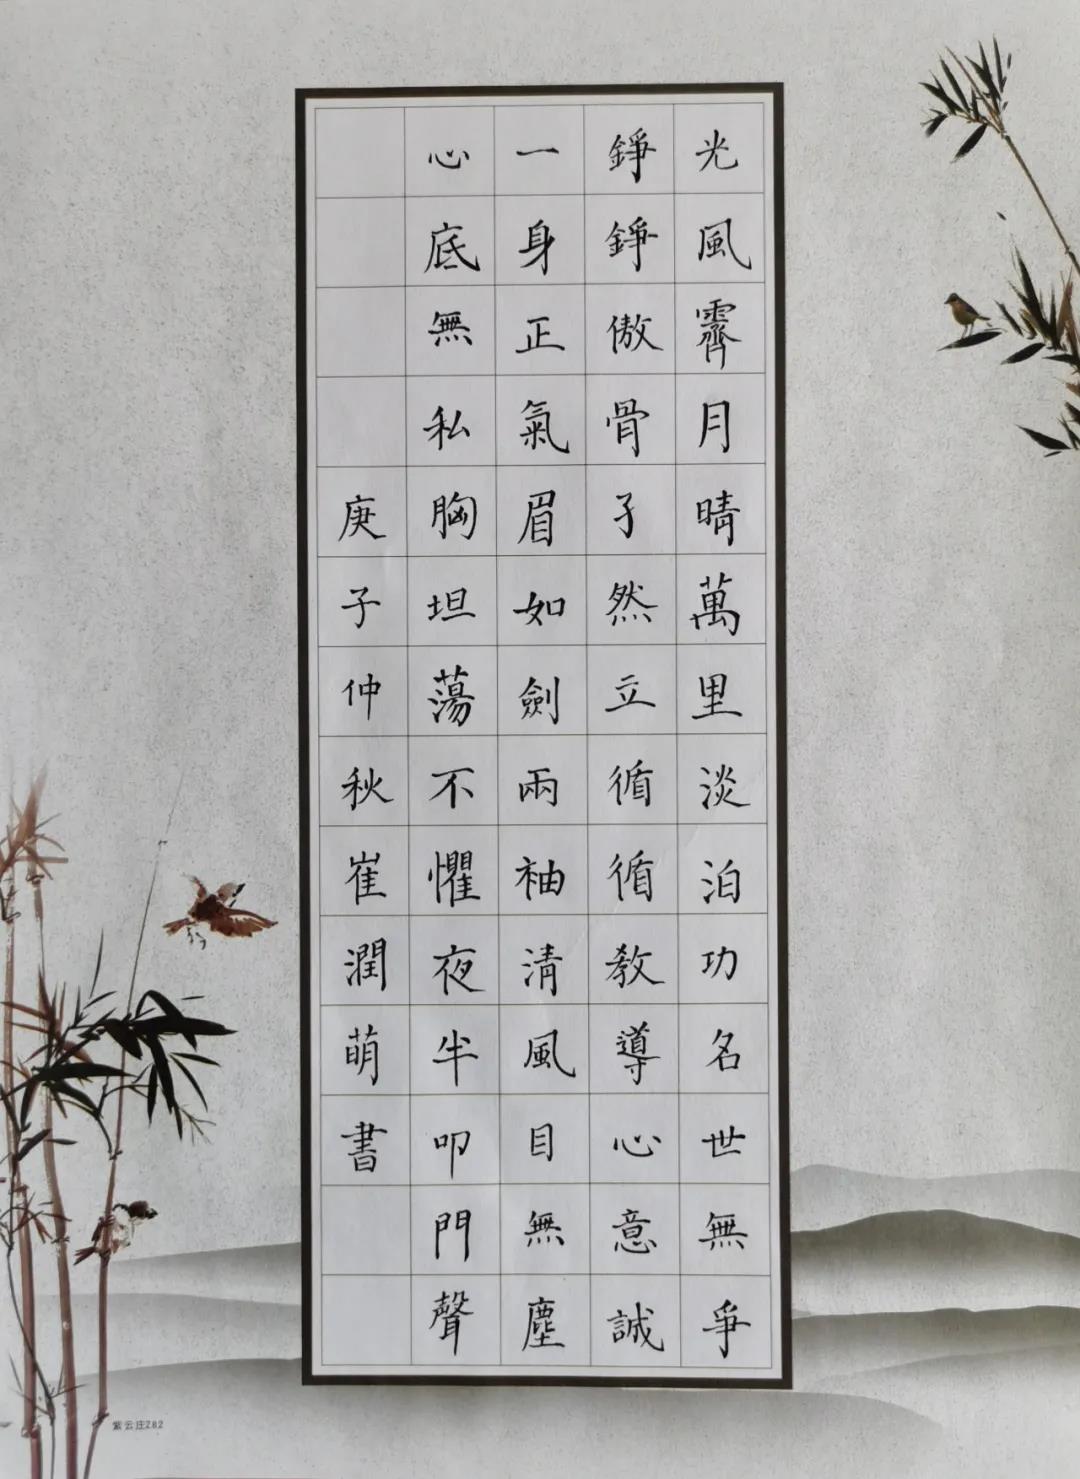 光風霽月晴萬里淡泊功名世無爭
錚錚傲骨孑然立循循教導心意誠
一身正氣眉如劍兩袖清風目無塵
心底無私胸坦蕩不懼夜半叩門聲
庚子仲秋崔潤萌書
紫云庄282